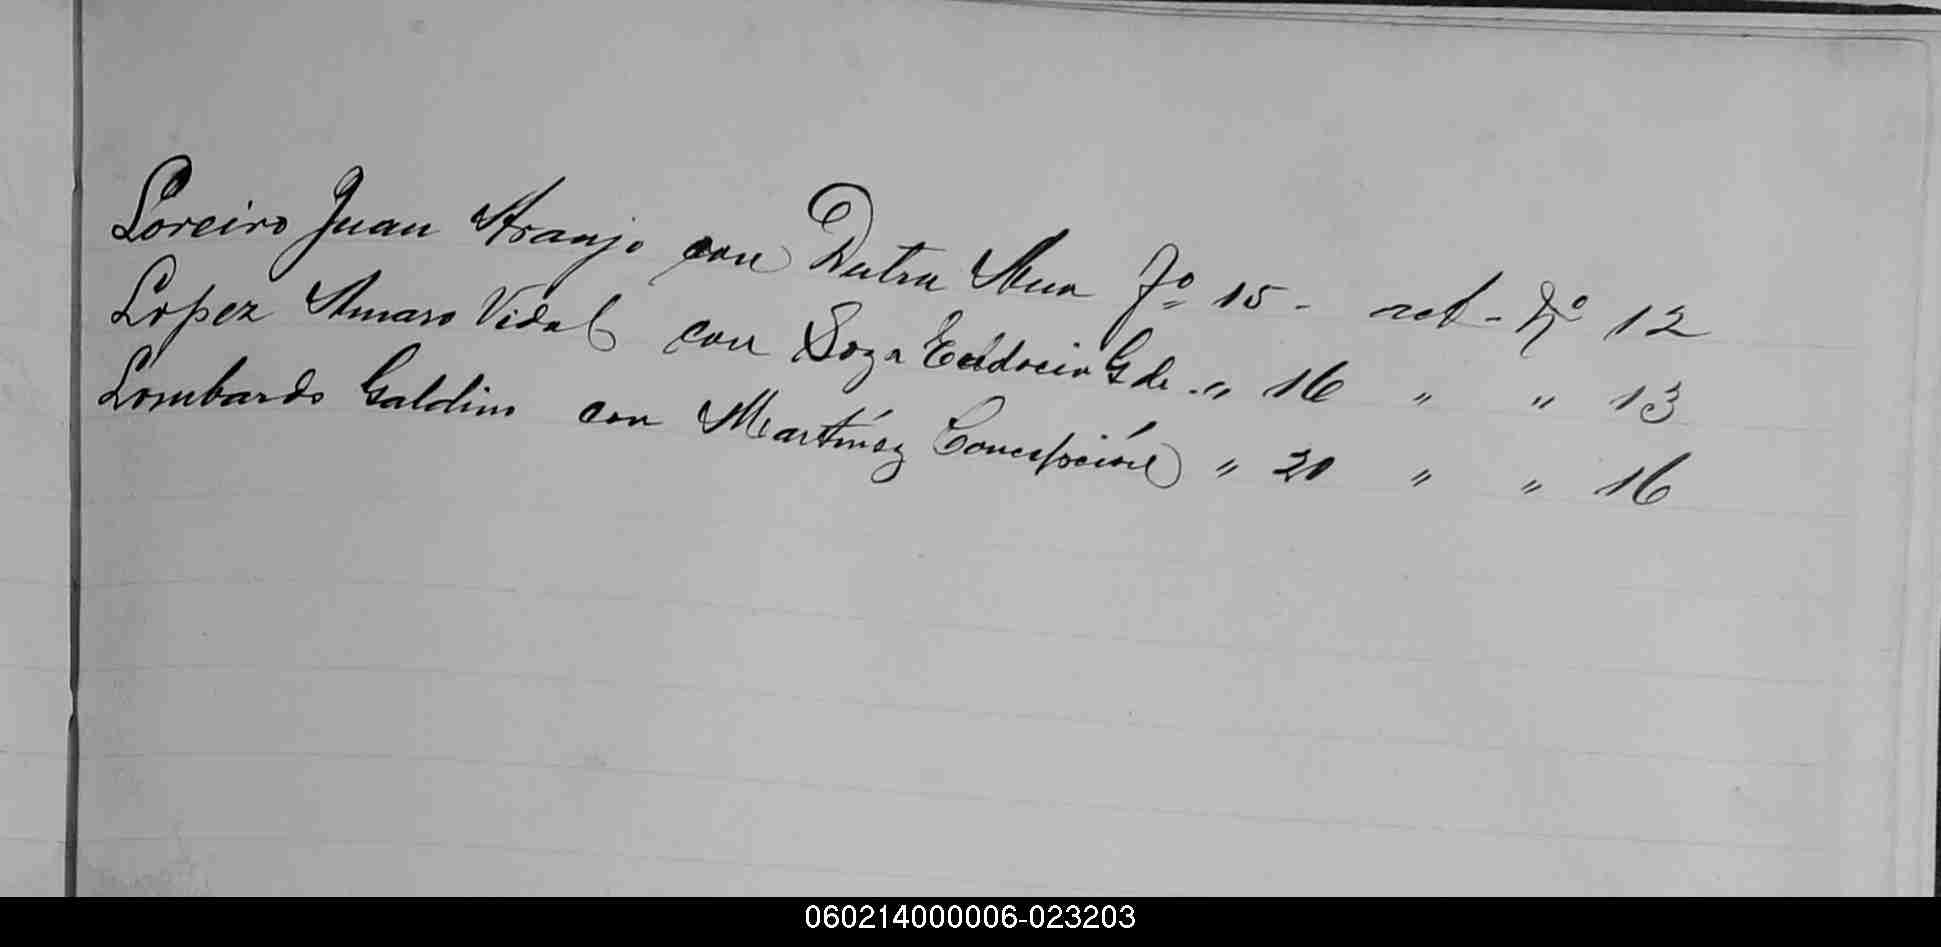 Loreiro Juan Araujo con Dutra Ana fº 15 - act - Nº 12
Lopez Amaro Vidal con Soza Eudocia G de - " 16 " " 13
Lombardo Galdino con Martínez Concepción " 20 " " 16
060214000006-023203